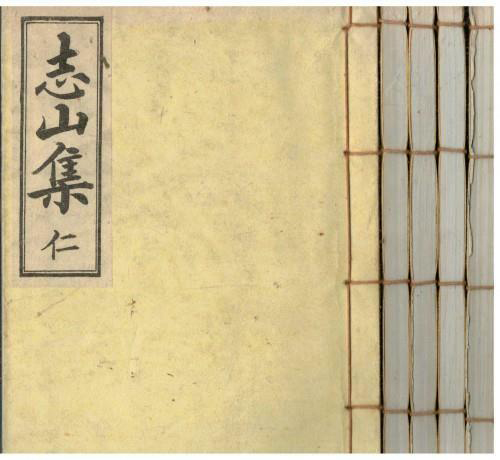 志山集 仁